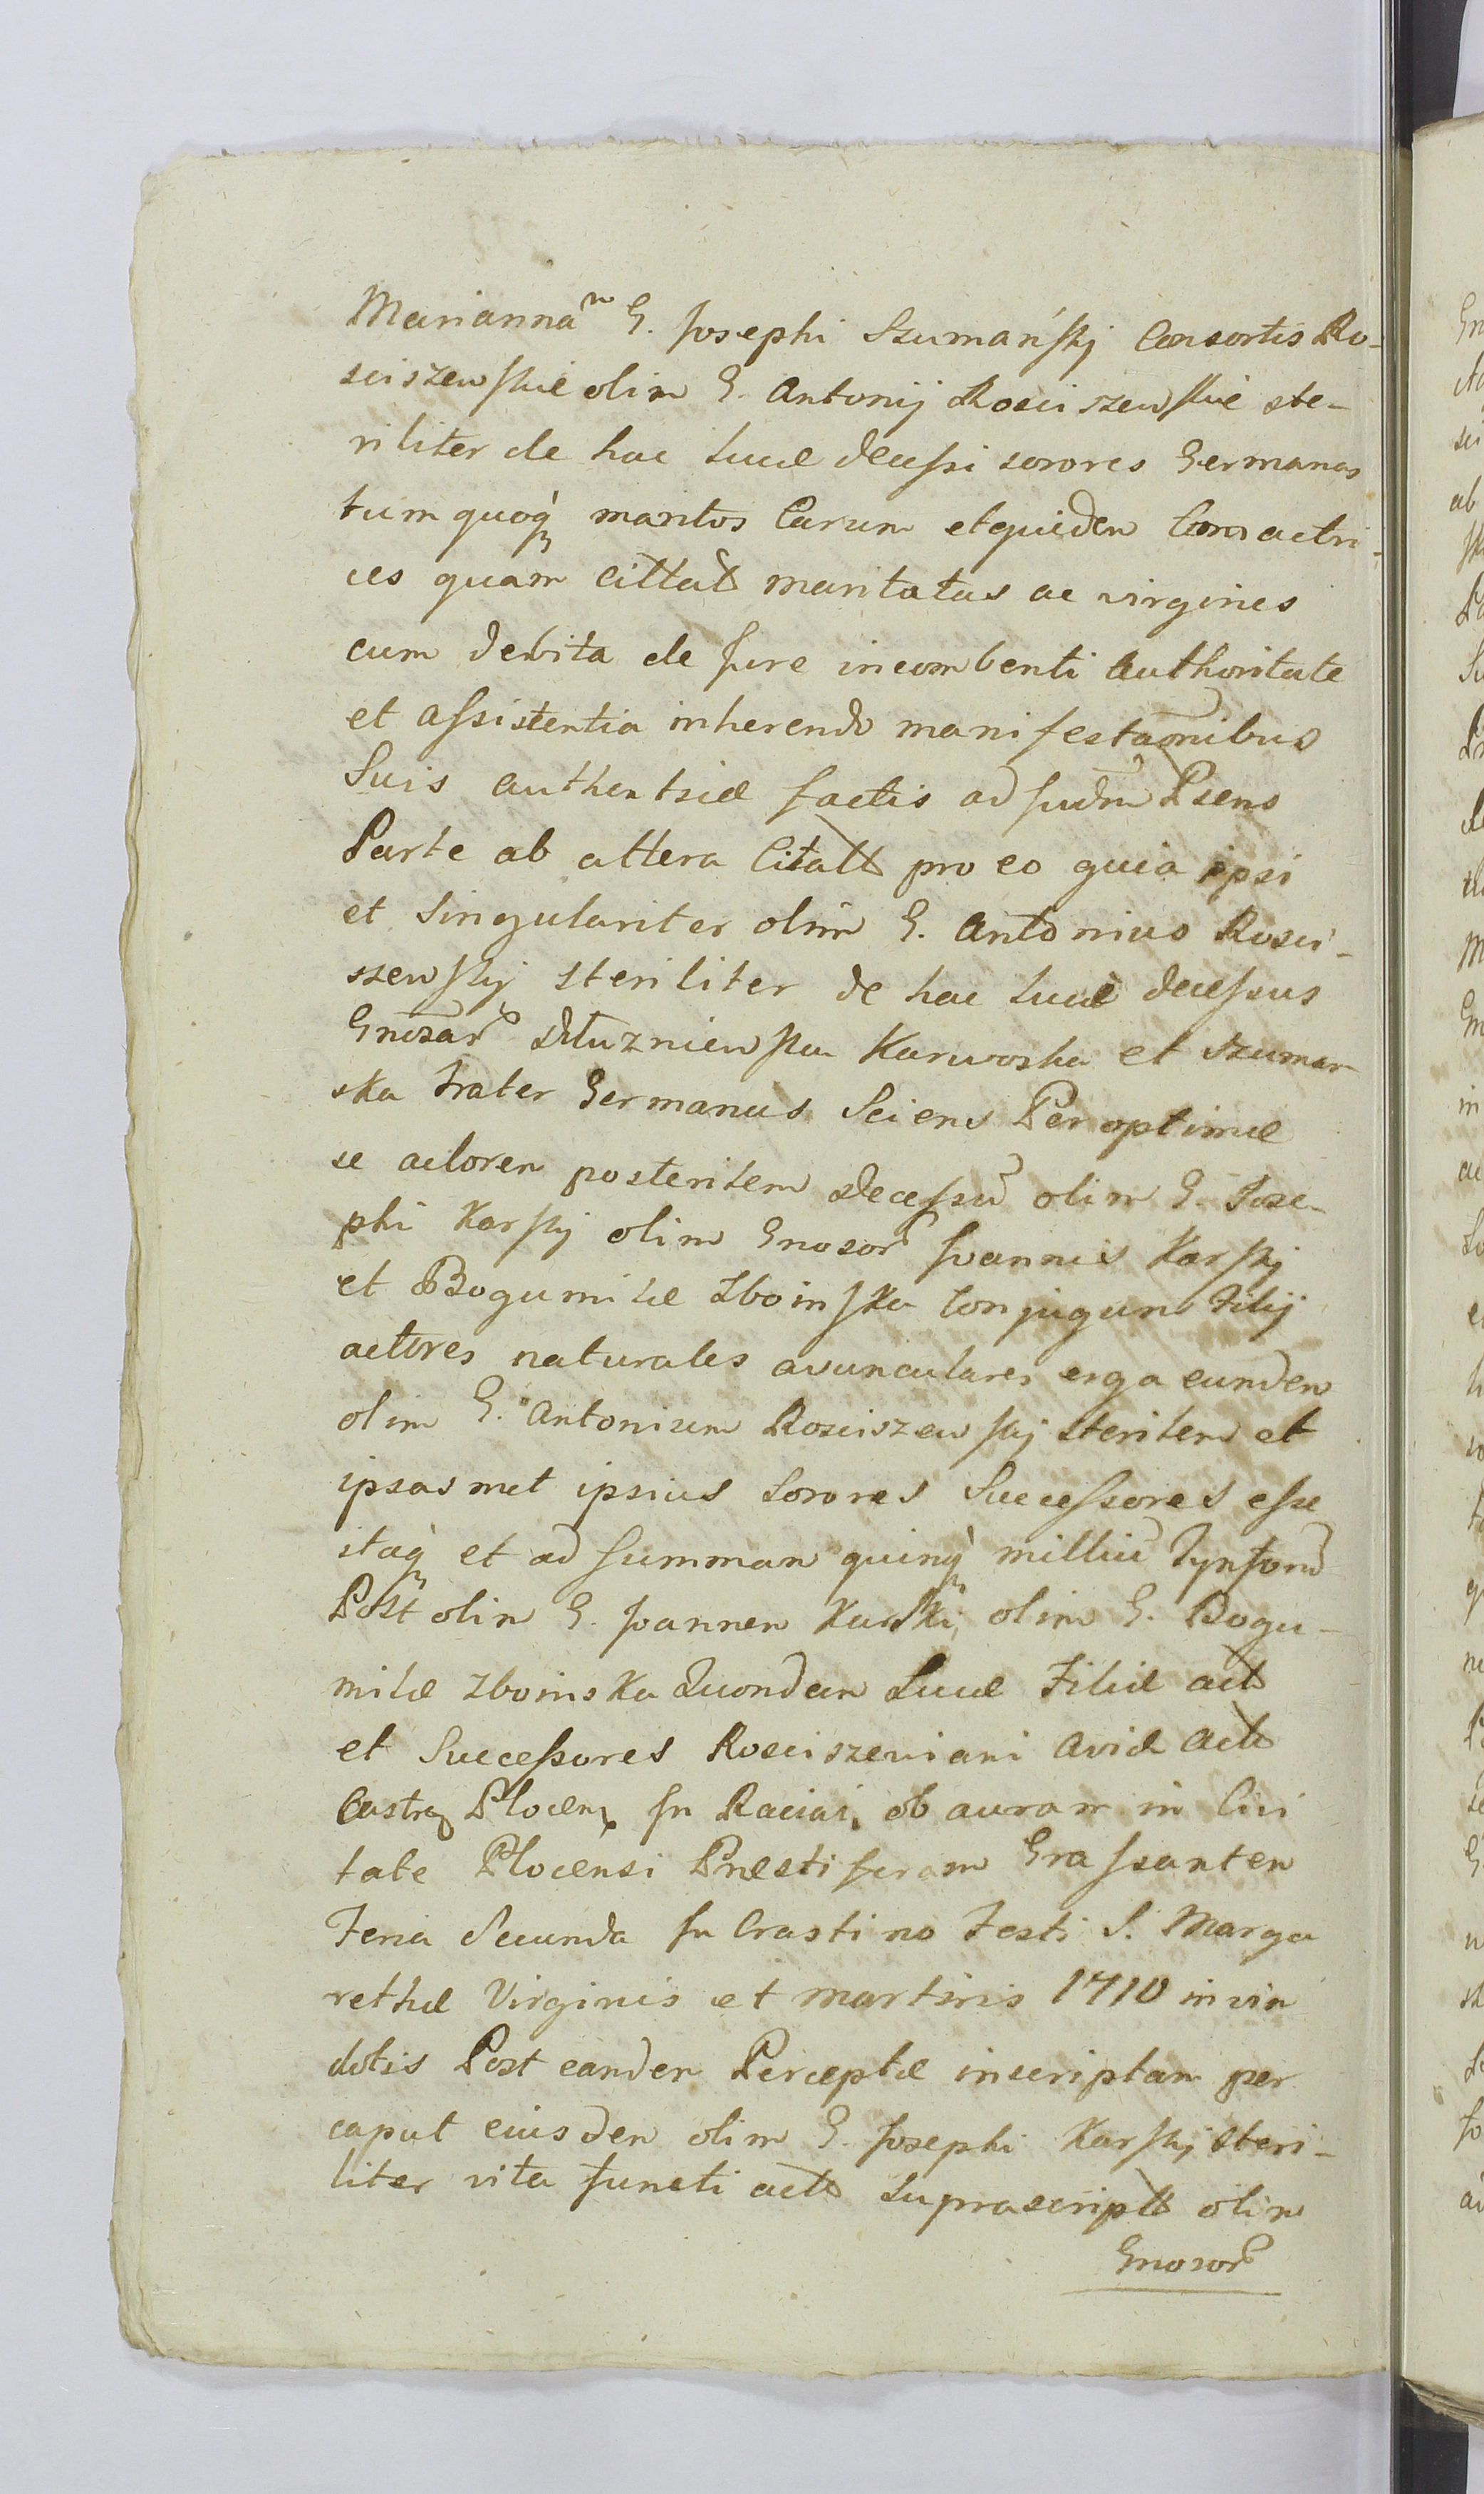 Mariannam G. Josephi Szumańskj Consortis Ro-
sciszewskie olim G. Antonij Rosciszewskie ste-
riliter de hac Luce decessi sorores Germanas
tum quoq maritos Earum etquidem Comactri-
ces quam cittat maritatas ac virgines
cum debita de Jure incombenti Authoritate
et assistentia inherendo manifestaonibus
Suis authentice factis ad Judm Psens
Parte ab altera Citatt pro eo quia ipsi
et Singulariter olim G. Antonius Rosci-
szewskj steriliter de hac Luce decessus
Gnosar Dłuzniewska Karwoska et Szuman
ska Frater Germanus Sciens Peroptime
se actorem posteritem decessu olim G. Jose-
phi Karskj olim Gnosor Joannis Karskj
et Bogumile Zboinska Conjugum Filij
actores naturales avunculares erga eundem
olim G. Antonium Rosciszewskj sterilem et
ipsasmet ipsius Sorores Successores esse
itaq et ad Summam quinq milliu Tynforu
Post olim G. Joannem Karski, olim G. Bogu-
mile Zboinska Quondam Luce Filie act
et Successores Rosciszeviani Avide Act
Castr Plocen In Raciaz ob auram in Civi
tate Plocensi Pnestiferam Grassantem
Feria Secunda In Crastino Festi S. Marga
rethe Virginis et martiris 1710 in vim
dotis Post eandem Percepte inscriptam per
caput eiusdem olim G. Josephi Karskj steri-
liter vita functi act Suprascriptt olim
Gnosor